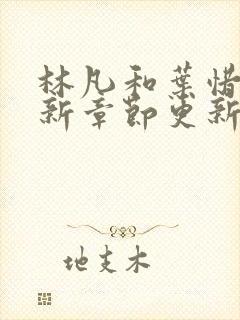 林凡和葉惜
新章節更新
地支木